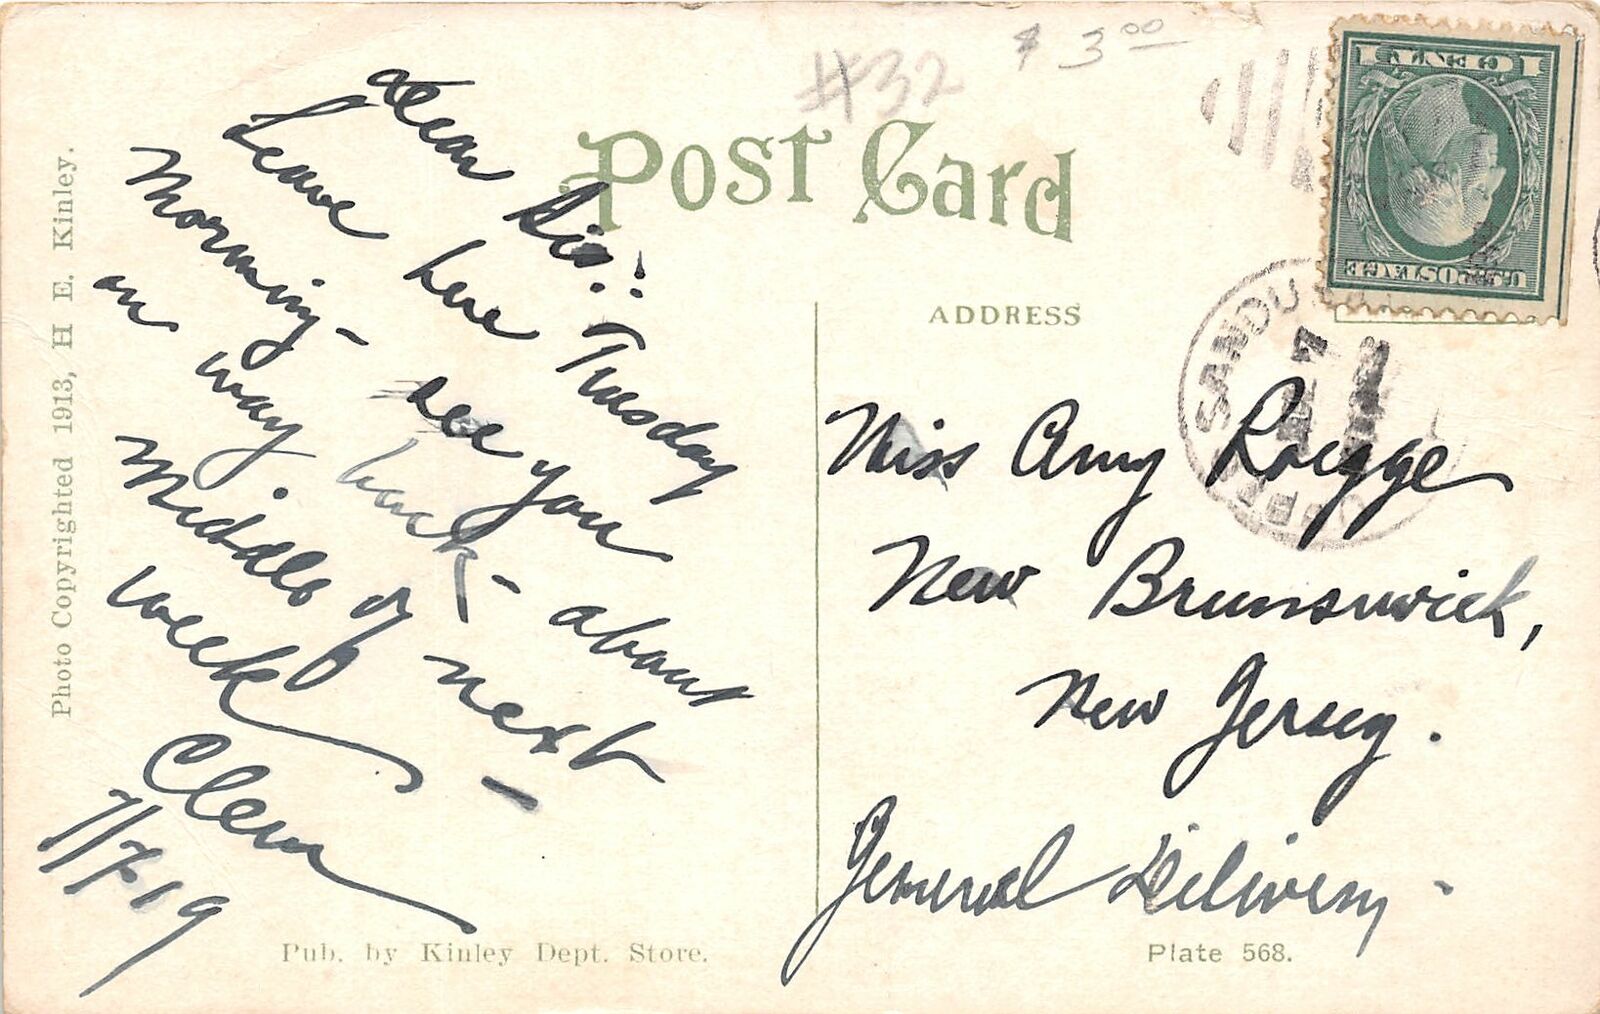 #32
$ 3.00
Post Card
1 CENT 1
U.S. POSTAGE
SANDU
7
Photo Copyrighted 1913, H E. Kinley.
ADDRESS
dear Sis:
Leave here Tuesday
Morning - see you
on way back - about
Middle of next
week -
Clem
7/7-19
Miss Amy Roegge
New Brunsuwick,
New Jersey.
General Delivery -
Pub. by Kinley Dept. Store.
Plate 568.